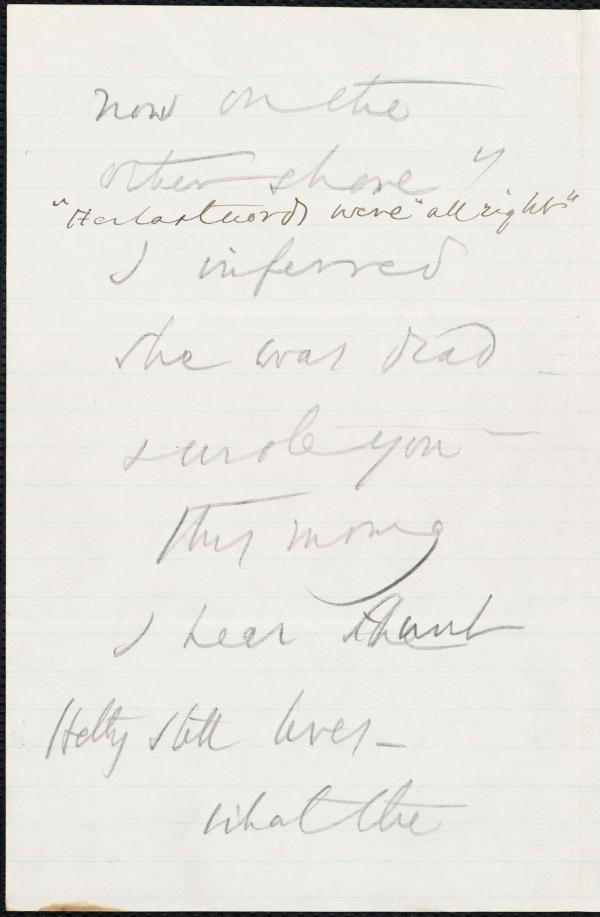 now on the
other shore"
"Her last words were "all right"
I inferred
she was dead
& wrote you —
This morng
I hear Aunt
Hetty still lives —
what the